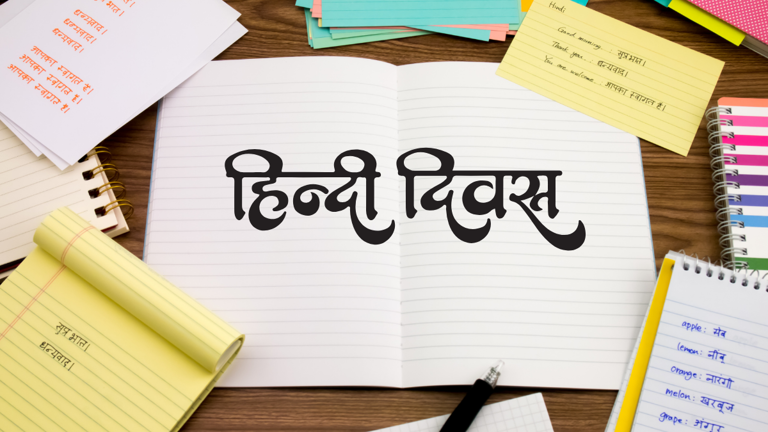 धन्यवाद।
धन्यवाद।
आपका स्वागत है।
आपका स्वागत है।
Hindi
Good morning - सुप्रभात।
Thank you - धन्यवाद।
You are welcome - आपका स्वागत है।
हिन्दी दिवस
सुप्रभात।
धन्यवाद।
apple: सेब
lemon: नींबू
orange: नारंगी
melon: खरबूज
grape: अंगूर